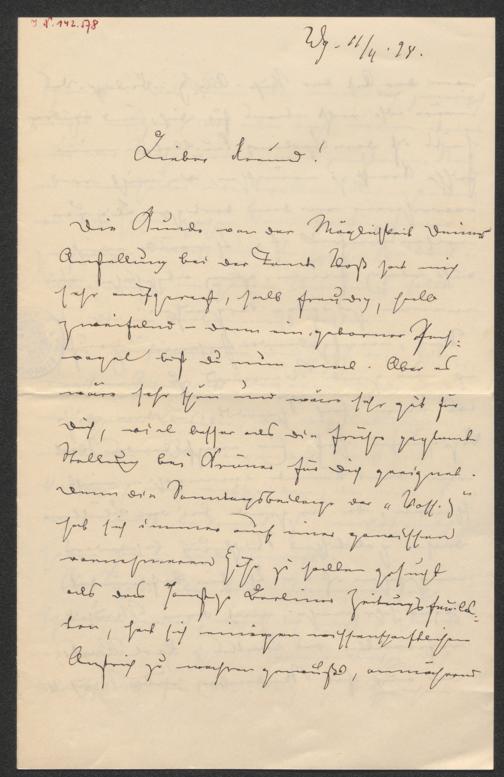 J. N. 142.578
Wg. 11/4. 94.
Lieber Freund!
Die Kunde von der Möglichkeit Deiner
Anstellung bei der Tante Voß hat mich
sehr aufgeregt, halb freudig, halb
zweifelnd – denn ein geborner Pech-
vogel bist Du nun mal. Aber es
wäre sehr schön und wäre sehr gut für
Dich, viel besser als die früher geplante
Stellung bei für Dich geeignet.
Denn die Sonntagsbeilage der „Voss. Z"
hat sich immer auf einer gewissen
vornehmeren Höhe zu halten gesucht
als das sonstige Berliner Zeitungsfeuille-
ton, hat sich einigen wissenschaftlichen
Anstrich zu wahren gewußt, annähernd